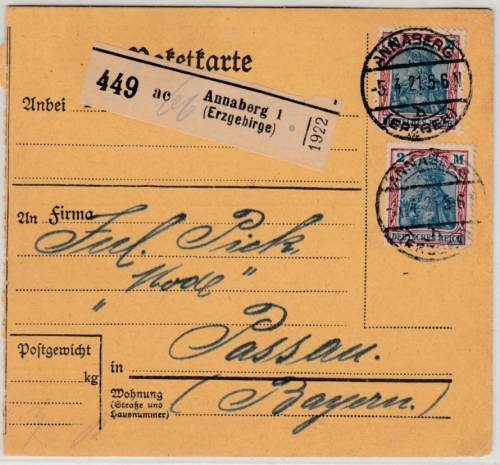 Paketkarte
449 ac Annaberg 1
(Erzgebirge)
1922
Anbei
ANNABERG
-5. 4. 21. 5-6 N
b
(ERZGEB.)
2 M
DEUTSCHES REICH
ANNABERG
b
An Firma
Jul. Pick
"Mode"
Passau.
Postgewicht
kg
in
Wohnung
(Straße und
Hausnummer)
(Bayern.)